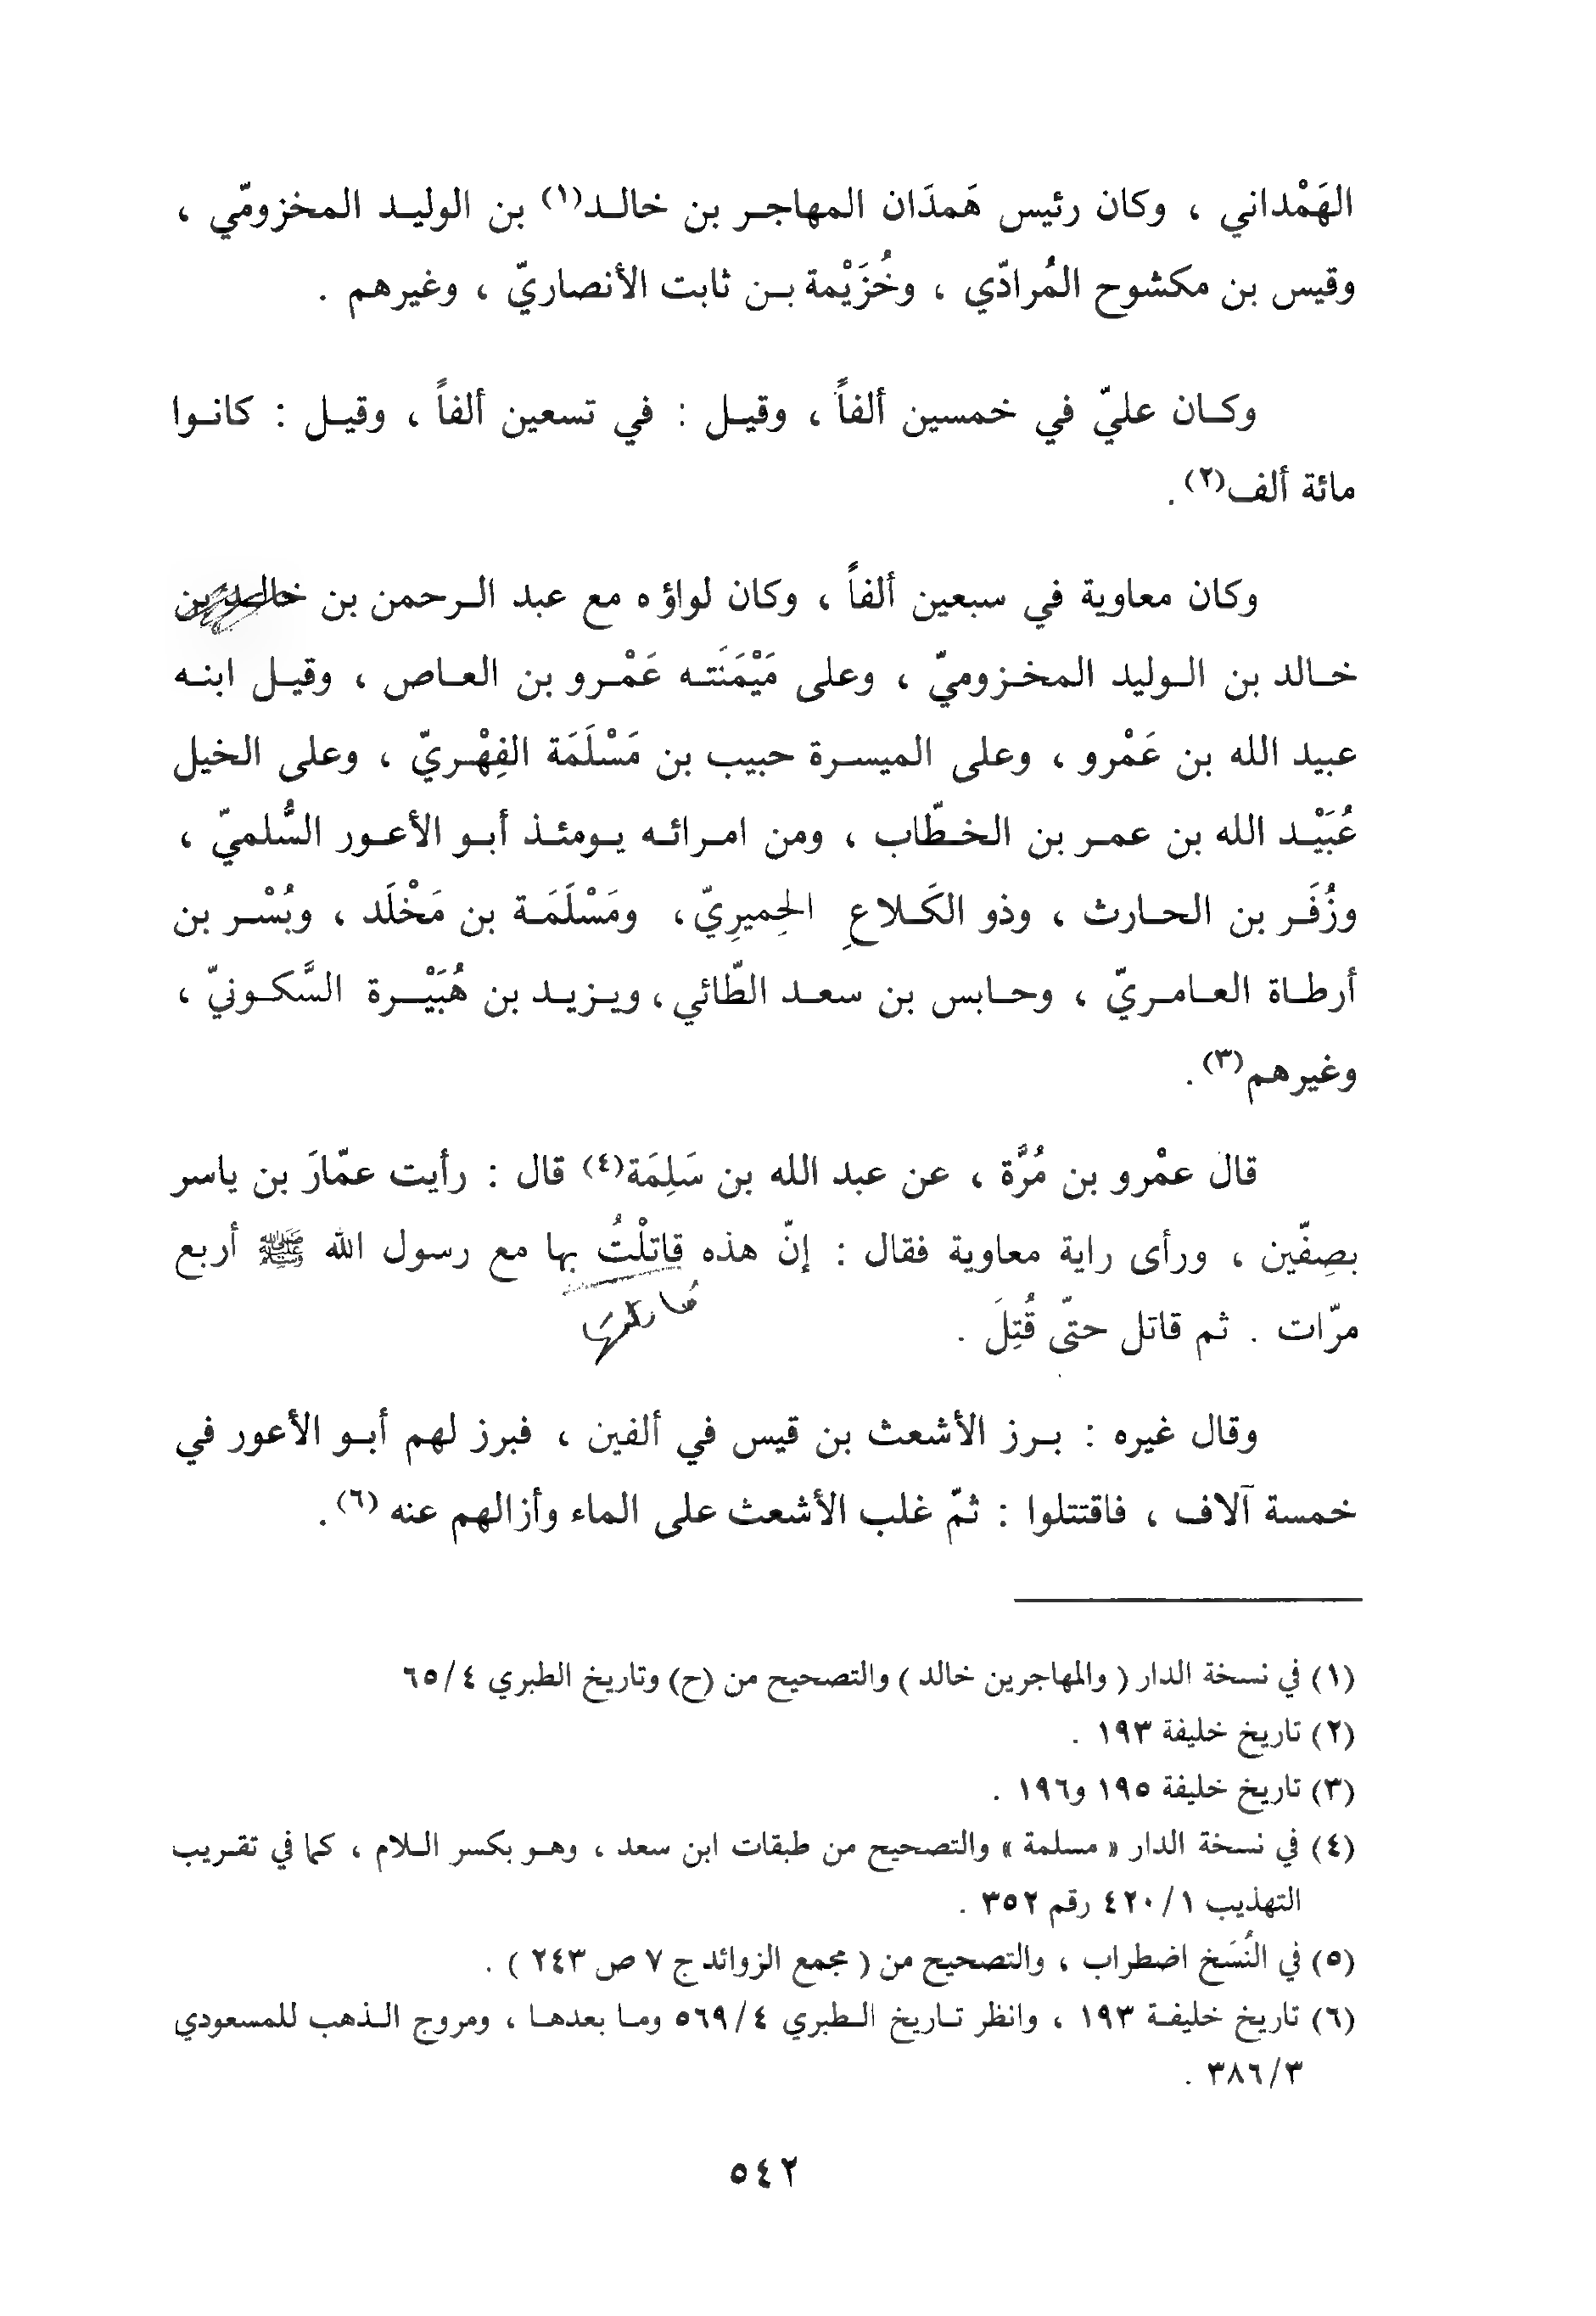 الهَمْداني ، وكان رئيس هَمدَان المهاجر بن خالد(١) بن الوليد المخزومّي ،
وقيس بن مكشوح المُرادّي ، وخُزَيْمة بن ثابت الأنصاريّ ، وغيرهم .
وكان عليّ في خمسين ألفاً ، وقيل : في تسعين ألفاً ، وقيل : كانوا
مائة ألف(٢) .
وكان معاوية في سبعين ألفاً ، وكان لواؤه مع عبد الرحمن بن خالد بن
خالد بن الوليد المخزوميّ ، وعلى مَيْمَنَته عَمْرو بن العاص ، وقيل ابنه
عبيد الله بن عَمْرو ، وعلى الميسرة حبيب بن مَسْلَمَة الفِهْريّ ، وعلى الخيل
عُبَيْد الله بن عمر بن الخطّاب ، ومن امرائه يومئذ أبو الأعور السُّلميّ ،
وزُفَر بن الحارث ، وذو الكَلاعِ الحِميرِيّ، ومَسْلَمَة بن مَخْلَد ، وبُسْر بن
أرطاة العامريّ ، وحابس بن سعد الطّائي ، ويزيد بن هُبَيْرة السَّكونيّ ،
وغيرهم(٣) .
قال عمْرو بن مُرَّة ، عن عبد الله بن سَلِمَة(٤) قال : رأيت عمّارَ بن ياسر
بصِفّين ، ورأى راية معاوية فقال : إنّ هذه قاتلْتُ بها مع رسول الله ﷺ أربع
مرّات . ثم قاتل حتّى قُتِلَ .
وقال غيره : برز الأشعث بن قيس في ألفين ، فبرز لهم أبو الأعور في
خمسة آلاف ، فاقتتلوا : ثمّ غلب الأشعث على الماء وأزالهم عنه (٦) .
(١) في نسخة الدار ( والمهاجرين خالد ) والتصحيح من (ح) وتاريخ الطبري ٦٥/٤
(٢) تاريخ خليفة ١٩٣ .
(٣) تاريخ خليفة ١٩٥ و١٩٦ .
(٤) في نسخة الدار « مسلمة » والتصحيح من طبقات ابن سعد ، وهو بكسر اللام ، كما في تقريب
التهذيب ٤٢٠/١ رقم ٣٥٢ .
(٥) في النُسَخ اضطراب ، والتصحيح من ( مجمع الزوائد ج ٧ ص ٢٤٣ ) .
(٦) تاريخ خليفة ١٩٣ ، وانظر تاريخ الطبري ٥٦٩/٤ وما بعدها ، ومروج الذهب للمسعودي
٣٨٦/٣ .
٥٤٢